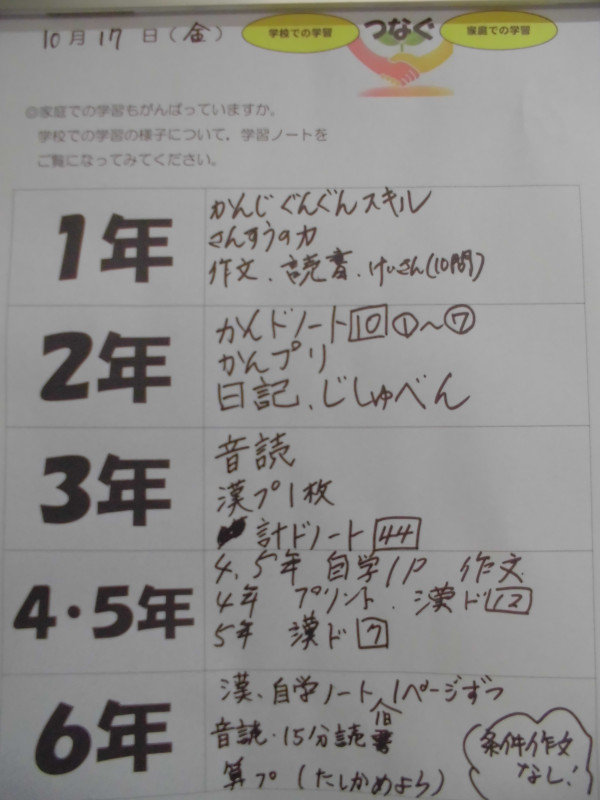 10月17日(金)
学校での学習
つなぐ
家庭での学習
◎家庭での学習もがんばっていますか。
学校での学習の様子について、学習ノートを
ご覧になってみてください。
1年
かんじぐんぐんスキル
さんすうの力
作文、読書、けいさん(10問)
2年
かんドノート10①~⑦
かんプリ
日記、じしゅべん
3年
音読
漢プ1枚
計ドノート44
4・5年
4、5年 自学1P 作文
4年 プリント、漢ド12
5年 漢ド7
6年
漢、自学ノート1ページずつ
音読・15分読
算プ(たしかめよう)
条件作文
なし!